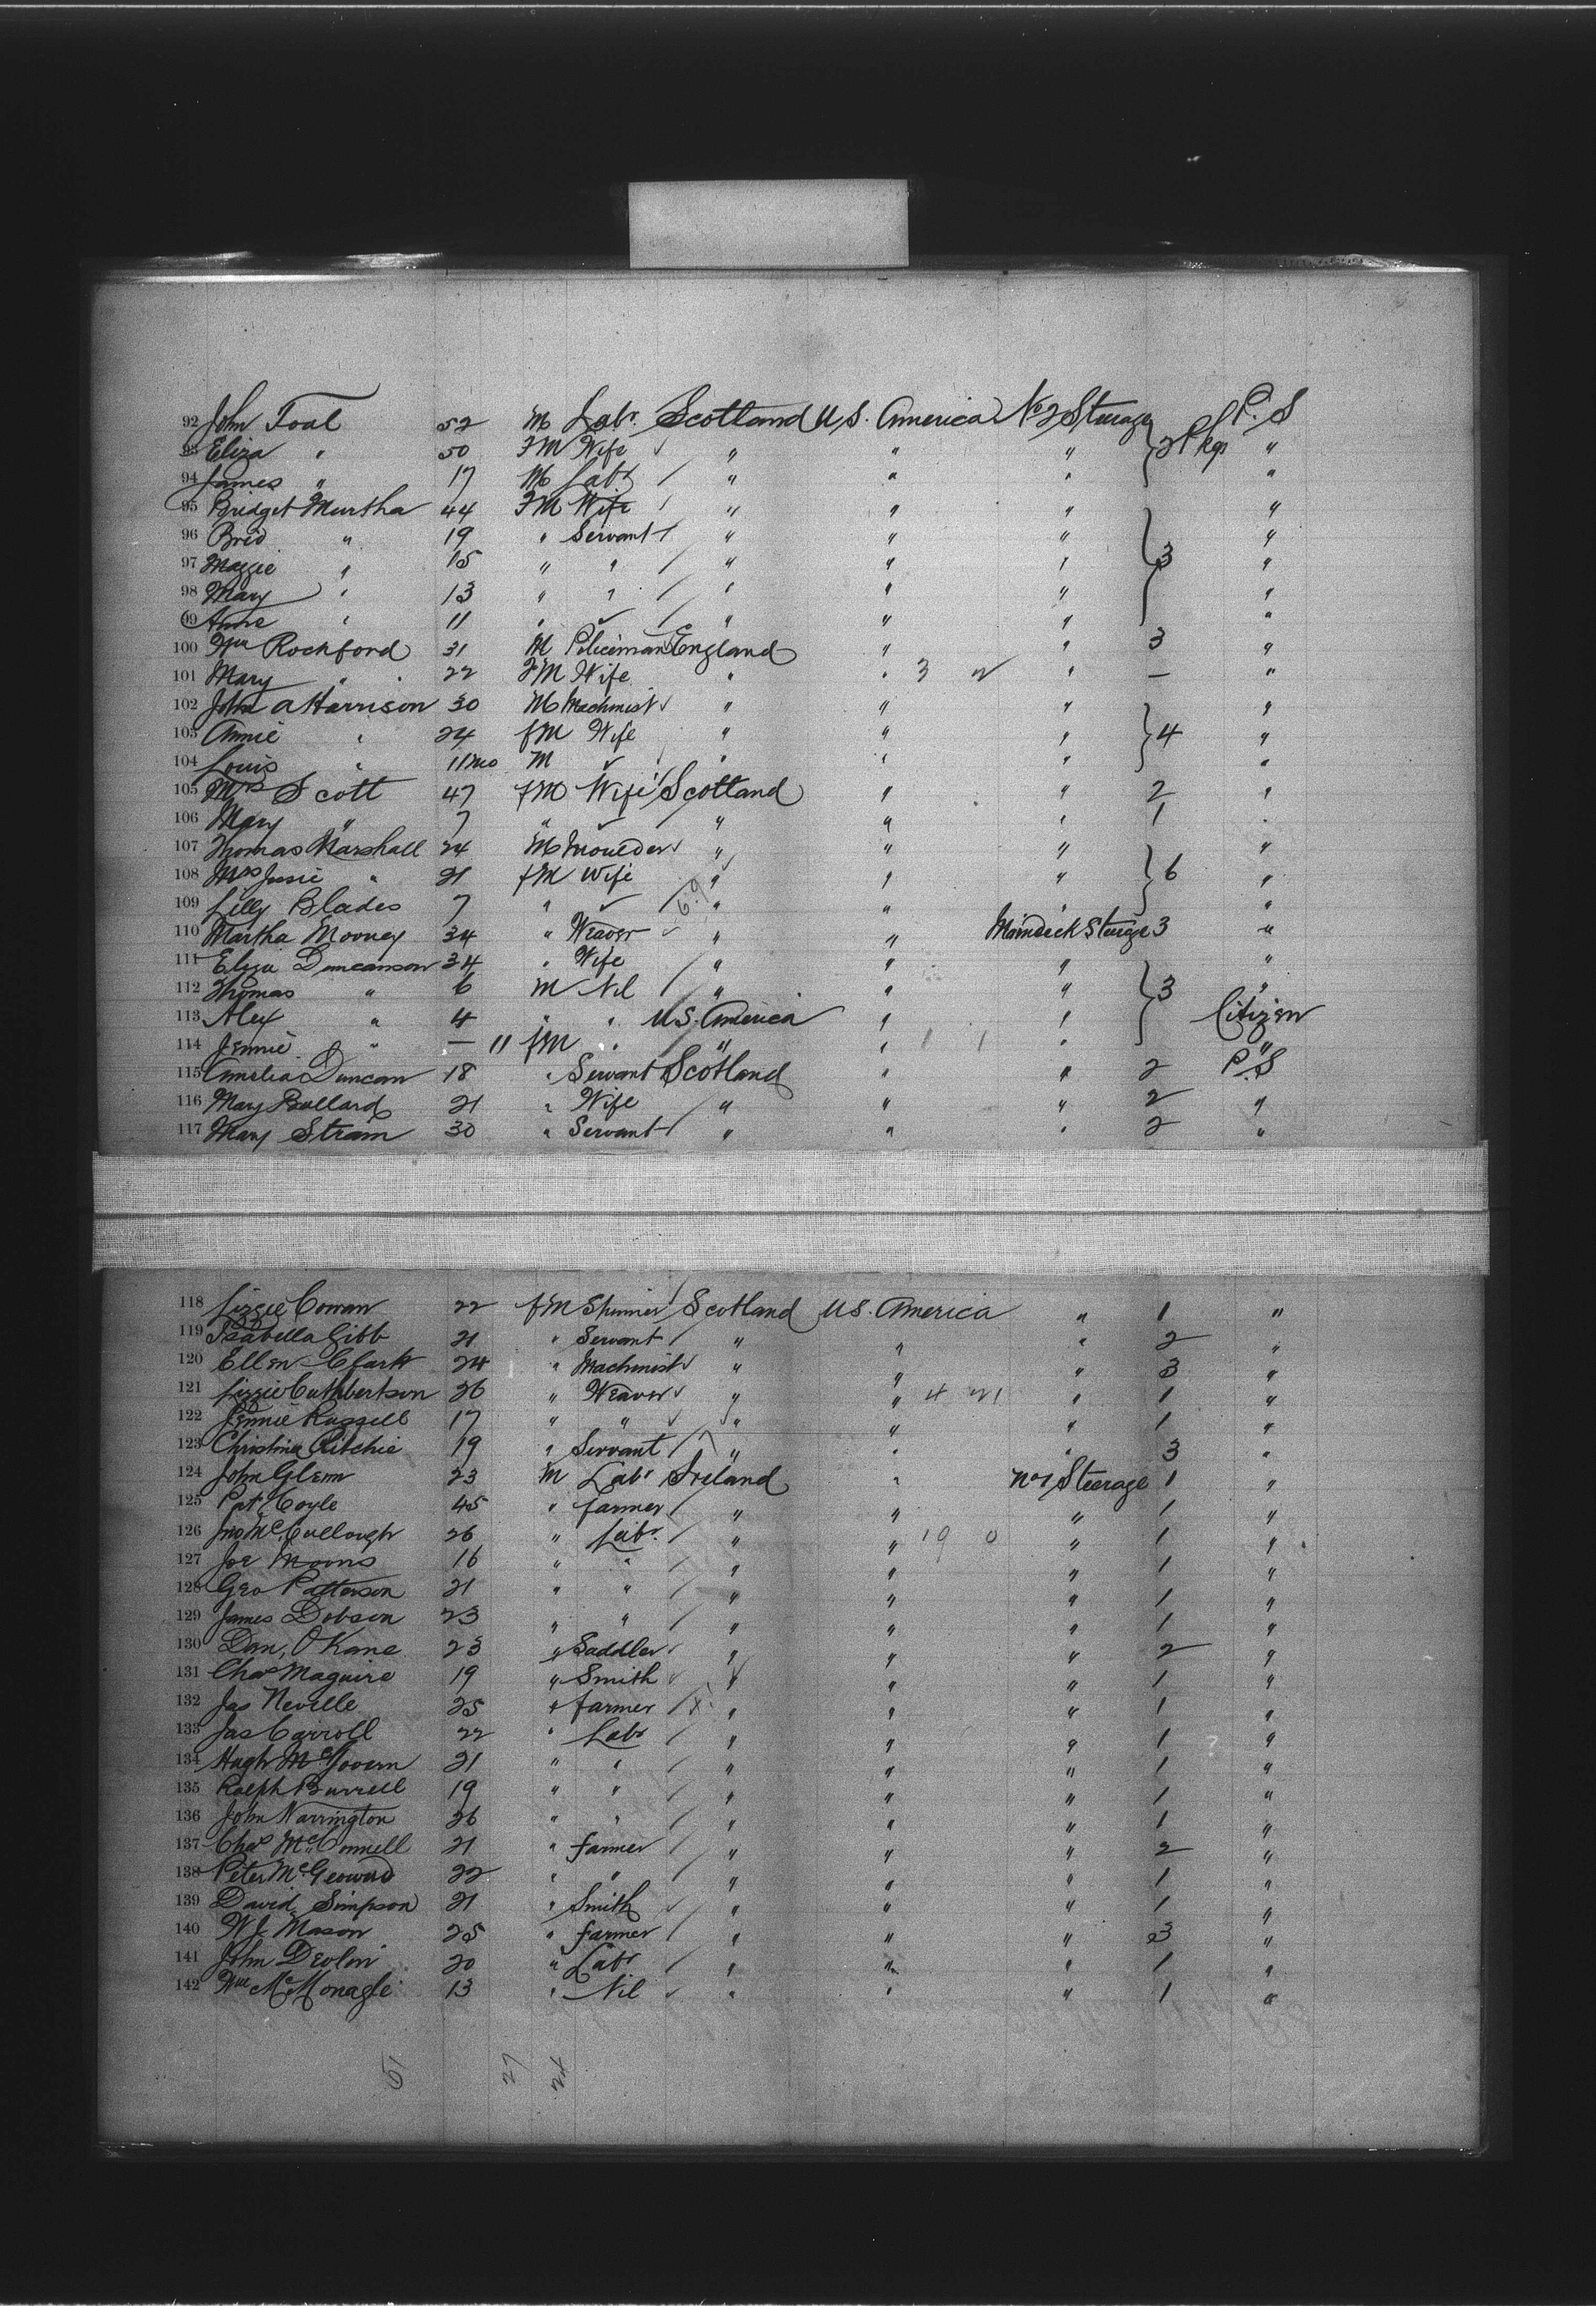 92 John Toal 52 M Labr. Scotland U.S. America No 2 Steerage 2 Pkgs P.S
93 Eliza " 50 FM Wife " " " "
94 James " 17 M Labr " " " "
95 Bridget Murtha 44 FM Wife " " " "
96 Brid " 19 " Servant " " " "
97 Maggie " 15 " " " " " 3 "
98 Mary " 13 " " " " " "
99 Anne " 11 " " " " "
100 Wm Rochford 31 M Policeman England " " 3 "
101 Mary " 22 FM Wife " " 3 " — "
102 John A Harrison 30 M Machinist " " " "
103 Annie " 24 fM Wife " " " 4 "
104 Louis " 11mo M " " " "
105 Mrs Scott 47 fM Wife Scotland " " 2 "
106 Mary " 7 " " " " 1 "
107 Thomas Marshall 24 M Moulder " " " "
108 Mrs Jessie " 21 fM Wife " " " 6 "
109 Lilly Blades 7 " " " " "
110 Martha Mooney 34 " Weaver " " Maindeck Steerge 3 "
111 Eliza Duncanson 34 " Wife " " " "
112 Thomas " 6 M Nil " " " 3 "
113 Alex " 4 " " U.S. America " " Citizen
114 Jennie " — 11 fM " " " 1 1 " "
115 Amelia Duncan 18 " Servant Scotland " " 2 P.S
116 Mary Ballard 21 " Wife " " " 2 "
117 Mary Stram 30 " Servant " " " 2 "
118 Lizzie Cowan 22 fM Spinner Scotland U.S. America " 1 "
119 Isabella Gibb 21 " Servant " " " 2 "
120 Ellen Clark 24 " Machinist " " " 3 "
121 Lizzie Cuthbertson 26 " Weaver " " 4 21 " 1 "
122 Jennie Russell 17 " " " " " 1 "
123 Christina Ritchie 19 " Servant " " " 3 "
124 John Glenn 23 M Labr Ireland " No 1 Steerage 1 "
125 Pat Coyle 45 " farmer " " " 1 "
126 Jno McCullough 26 " Labr. " " 19 0 " 1 "
127 Joe Morris 16 " " " " " 1 "
128 Geo Patterson 21 " " " " " 1 "
129 James Dobson 23 " " " " " 1 "
130 Dan, O'Kane 23 " Saddler " " " 2 "
131 Chas Maguire 19 " Smith " " " 1 "
132 Jas Neville 25 " farmer " " " 1 "
133 Jas Carroll 22 " Labr " " " 1 "
134 Hugh McGovern 21 " " " " " 1 "
135 Ralph Burrell 19 " " " " " 1 "
136 John Warrington 26 " " " " " 1 "
137 Chas McConnell 21 " farmer " " " 2 "
138 Peter 22 " " " " " 1 "
139 David Simpson 21 " Smith " " " 1 "
140 W.J. Mason 25 " farmer " " " 3 "
141 John Devlin 20 " Labr " " " 1 "
142 Wm McMonagle 13 " Nil " " " 1 "
51 27 24